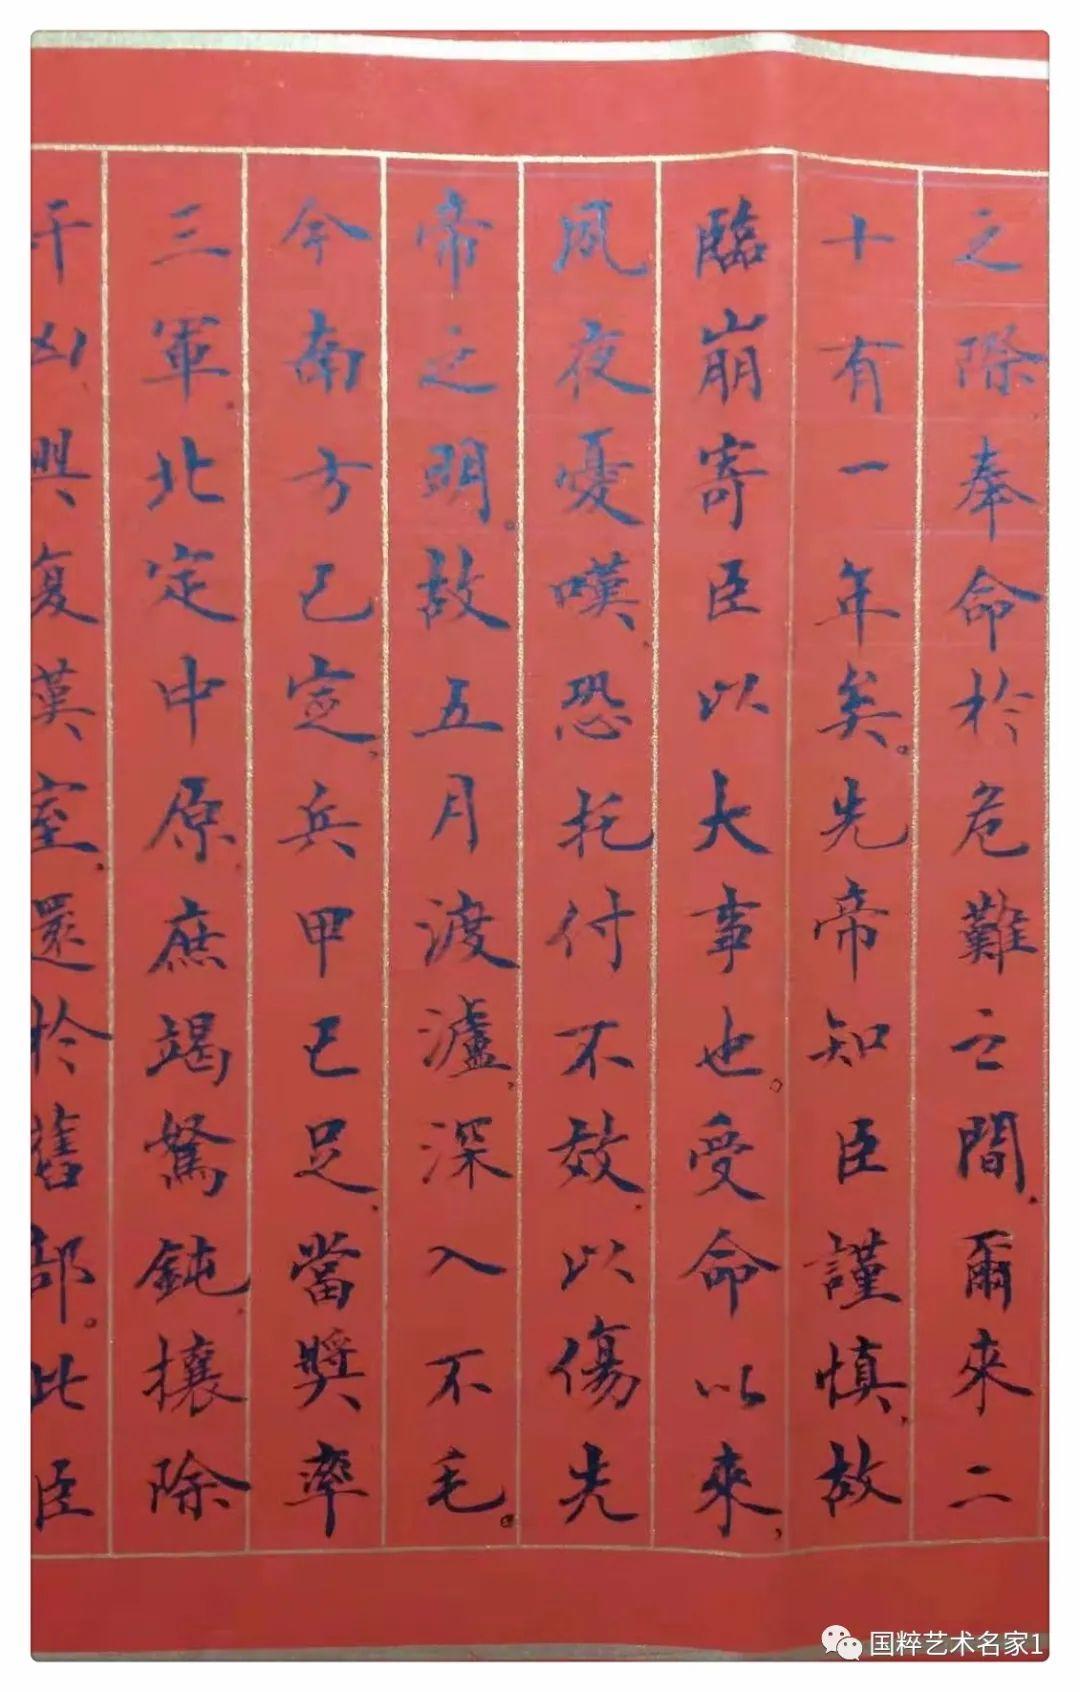 之際,奉命於危難之間,爾來二
十有一年矣。先帝知臣謹慎,故
臨崩寄臣以大事也。受命以來,
夙夜憂嘆,恐托付不效,以傷先
帝之明。故五月渡瀘,深入不毛。
今南方已定,兵甲已足,當奬率
三軍,北定中原,庶竭駑鈍,攘除
干凶,興复漢室,還於舊部。此臣
国粹艺术名家1